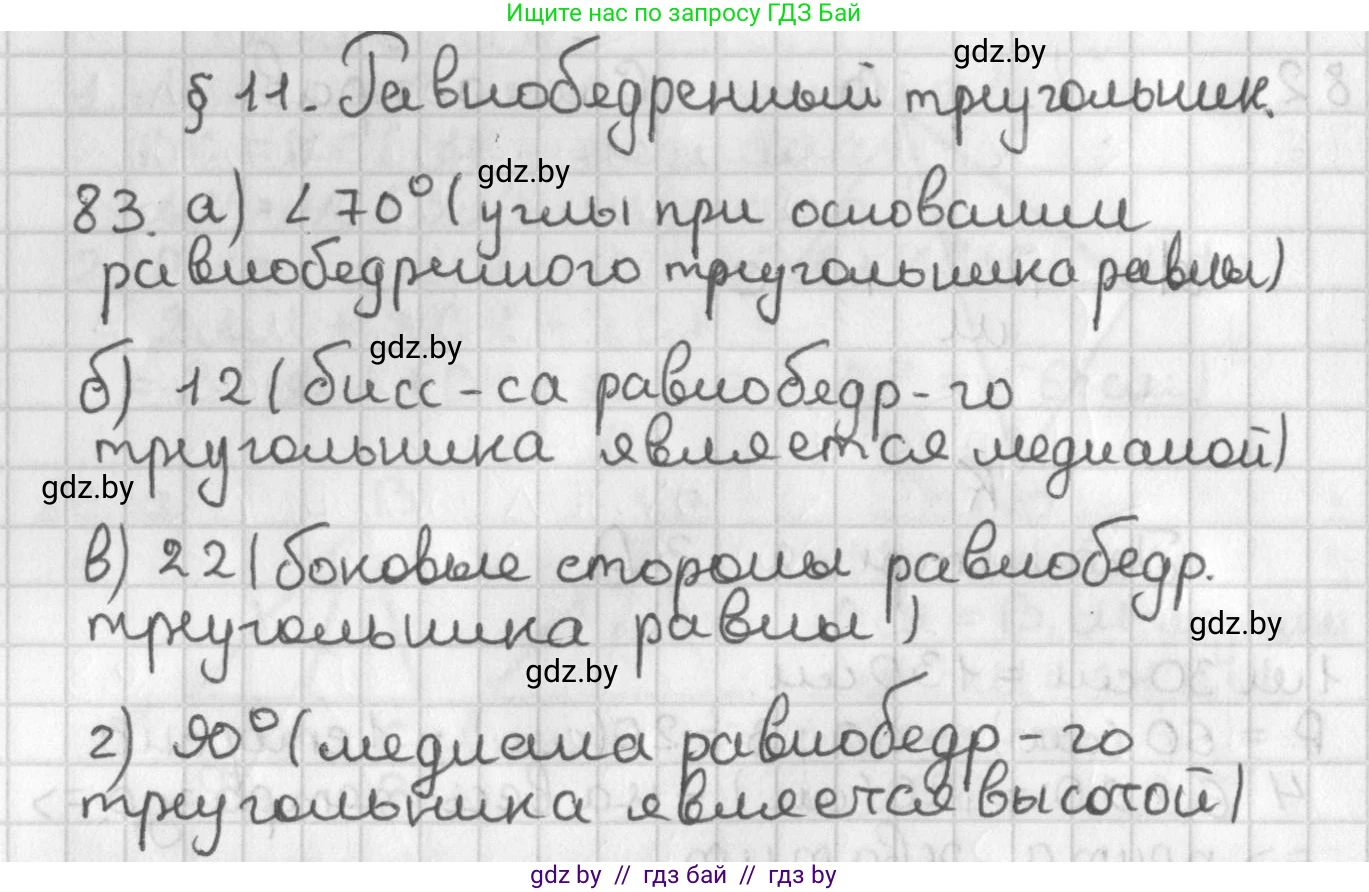 Ищите нас по запросу ГДЗ Бай
gdz.by
§ 11. Равнобедренный треугольник.
gdz.by
83. а) ∠70° (углы при основании
равнобедренного треугольника равны)
gdz.by
б) 12 (бисс-са равнобедр-го
треугольника является медианой)
gdz.by
в) 22 (боковые стороны равнобедр.
треугольника равны)
gdz.by
gdz.by
г) 90° (медиана равнобедр-го
треугольника является высотой)
gdz.by // гдз бай // гдз by